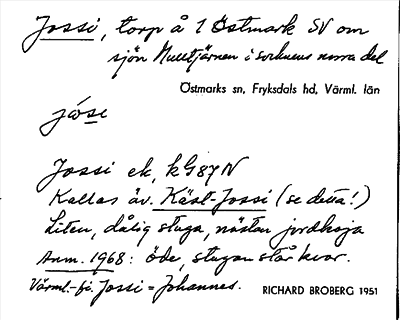 Jossi, torp å 1 Östmark SV om
sjön Mulltjärnen i socknens norra del
Östmarks sn, Fryksdals hd, Värml. län
jóse
Jossi ek, kG87N
Kallas äv. Käst-Jossi (se detta!)
Liten, dålig stuga, nästan jordkoja
Anm. 1968: öde, stugan står kvar.
Värml.-fi. Jossi = Johannes.
RICHARD BROBERG 1951